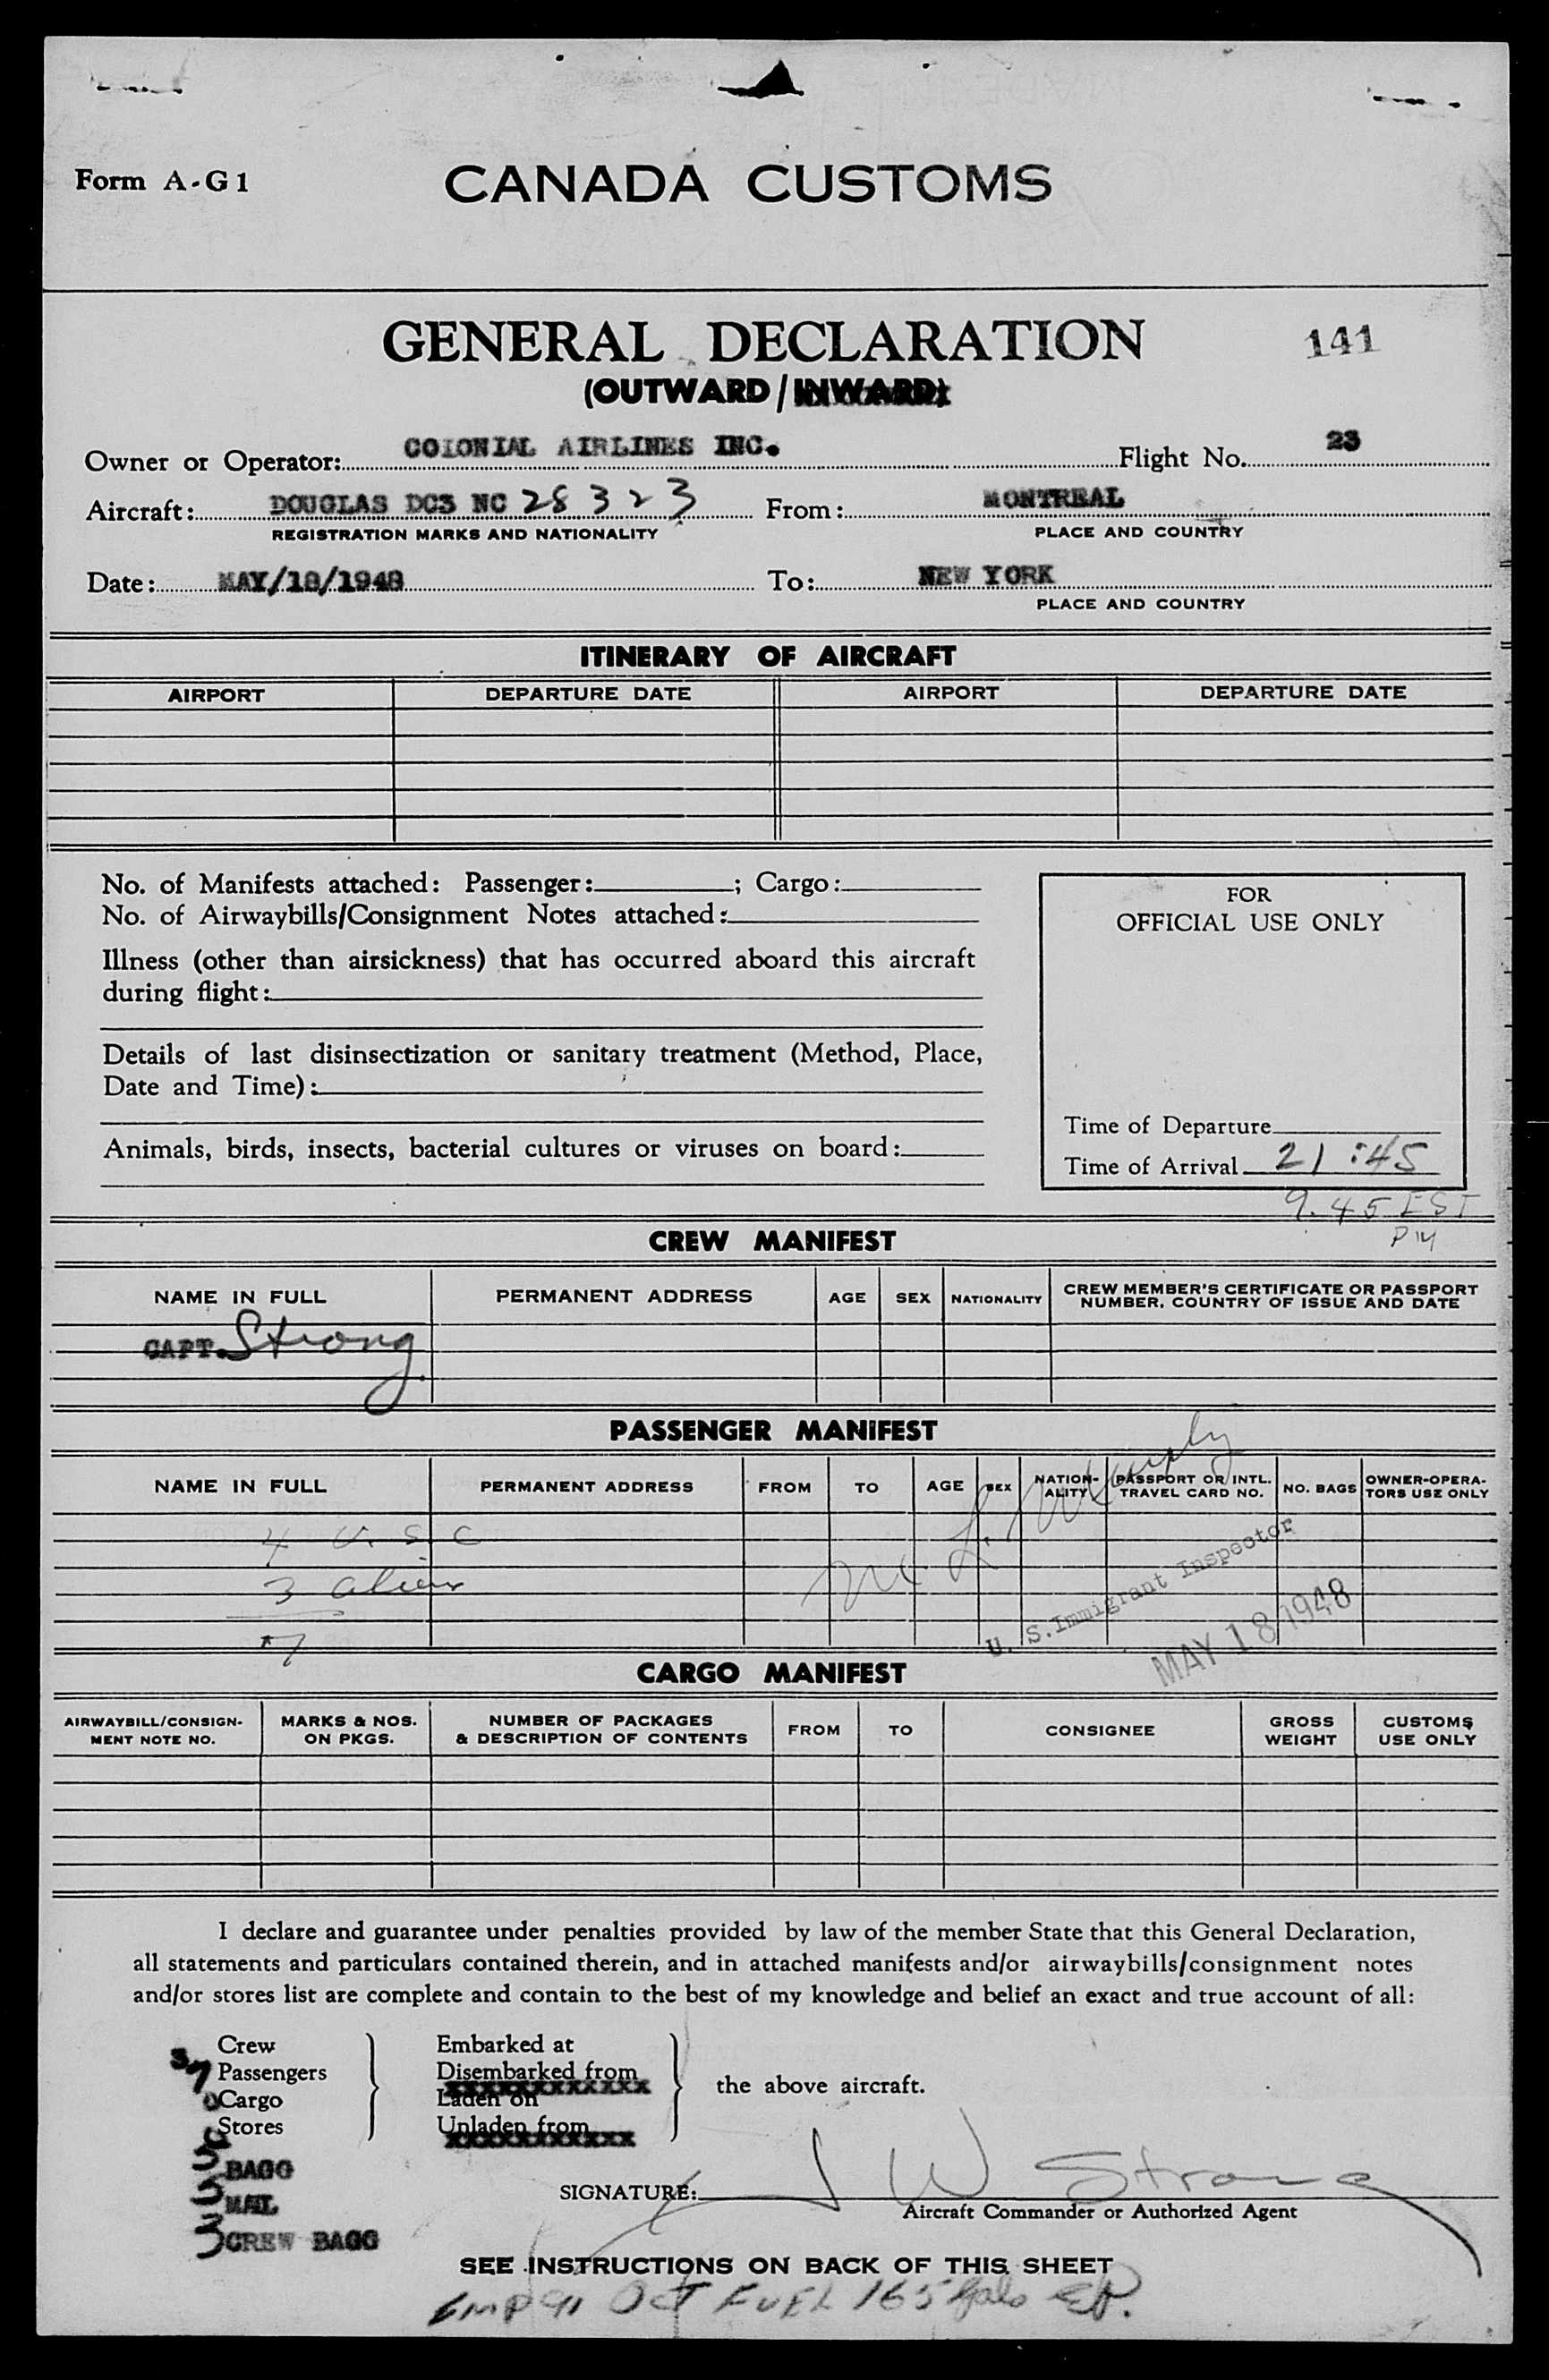 Form A-G1
CANADA CUSTOMS
GENERAL DECLARATION
141
(OUTWARD/INWARD)
Owner or Operator: COLONIAL AIRLINES INC. Flight No. 23
Aircraft: DOUGLAS DC3 NC 28323 From: MONTREAL
REGISTRATION MARKS AND NATIONALITY PLACE AND COUNTRY
Date: MAY/18/1948 To: NEW YORK
PLACE AND COUNTRY
ITINERARY OF AIRCRAFT
AIRPORT DEPARTURE DATE AIRPORT DEPARTURE DATE
No. of Manifests attached: Passenger: ; Cargo:
No. of Airwaybills/Consignment Notes attached:
Illness (other than airsickness) that has occurred aboard this aircraft
during flight:
Details of last disinsectization or sanitary treatment (Method, Place,
Date and Time):
Animals, birds, insects, bacterial cultures or viruses on board:
FOR
OFFICIAL USE ONLY
Time of Departure
Time of Arrival 21:45
9.45 EST
PM
CREW MANIFEST
NAME IN FULL PERMANENT ADDRESS AGE SEX NATIONALITY CREW MEMBER'S CERTIFICATE OR PASSPORT
NUMBER, COUNTRY OF ISSUE AND DATE
CAPT. Strong
PASSENGER MANIFEST
NAME IN FULL PERMANENT ADDRESS FROM TO AGE SEX NATION- PASSPORT OR INTL. NO. BAGS OWNER-OPERA-
ALITY TRAVEL CARD NO. TORS USE ONLY
4 U.S.C
3 alien
7
U. S. Immigrant Inspector
MAY 18 1948
CARGO MANIFEST
AIRWAYBILL/CONSIGN- MARKS & NOS. NUMBER OF PACKAGES FROM TO CONSIGNEE GROSS CUSTOMS
MENT NOTE NO. ON PKGS. & DESCRIPTION OF CONTENTS WEIGHT USE ONLY
I declare and guarantee under penalties provided by law of the member State that this General Declaration,
all statements and particulars contained therein, and in attached manifests and/or airwaybills/consignment notes
and/or stores list are complete and contain to the best of my knowledge and belief an exact and true account of all:
3 Crew Embarked at
7 Passengers Disembarked from
0 Cargo Laden on the above aircraft.
Stores Unladen from
BAGG
MAIL
3 CREW BAGG
SIGNATURE: J W Strong
Aircraft Commander or Authorized Agent
SEE INSTRUCTIONS ON BACK OF THIS SHEET
91 OCT FUEL 165 gals